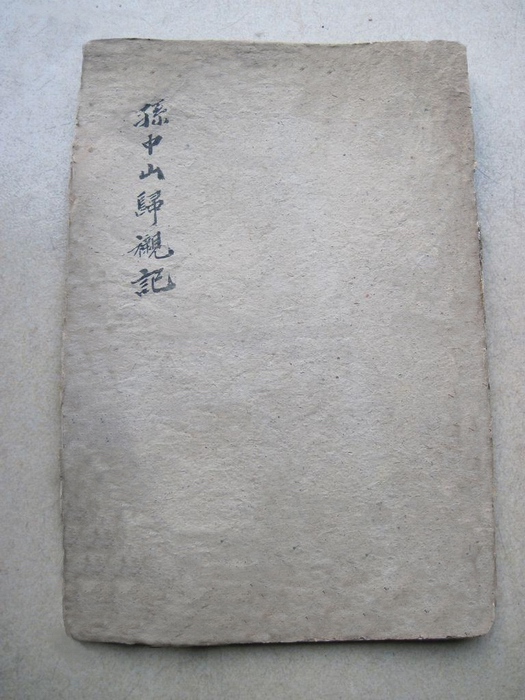 孫中山歸襯記